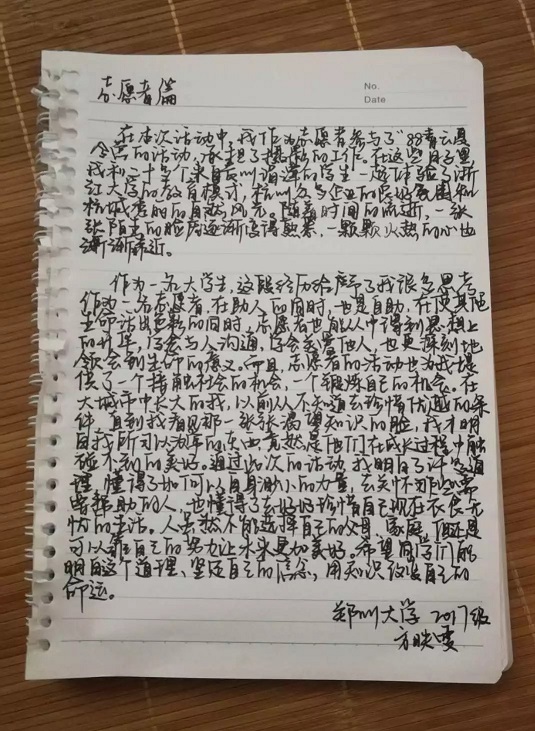 志愿者篇
No.
Date
在本次活动中,我作为志愿者参与了"88青云夏
令营的活动,承担了摄影的工作。在这些日子里
我和二十 个来自 的学生一起体验了浙
江大学的教育模式,杭州 与企业的良好氛围和
杭城秀丽的自然风光。随着时间的流逝,一张
张陌生的脸庞逐渐变得熟悉,一颗颗火热的心也
渐渐靠近。
作为一名大学生,这段经历给予了我很多思考
作为一名志愿者,在助人的同时,也是自助,在使其他
生命活出色彩的同时,志愿者也能从中得到思想上
的升华,学会与人沟通,学会关爱他人,也更深刻地
领会到生命的意义。而且,志愿者的活动也为我提
供了一个接触社会的机会,一个锻炼自己的机会。在
大城市中长大的我,以前从不知道去珍惜优越的条
件,直到我看见那一张张渴望知识的脸,我才明
白我所习以为常的东西,竟然是他们在成长过程中触
碰不到的美好。通过此次的活动,我明白了许多道
理,懂得了如何以自身渺小的力量,去关怀可
帮助的人,也懂得了去好好珍惜自己现在衣食无
忧的生活。人虽然不能选择自己的父母、家庭,但还是
可以靠自己的努力让未来更加美好。希望同学们能
明白这个道理,坚定自己的信念,用知识改变自己的
命运。
郑州大学 2017级
方映雯